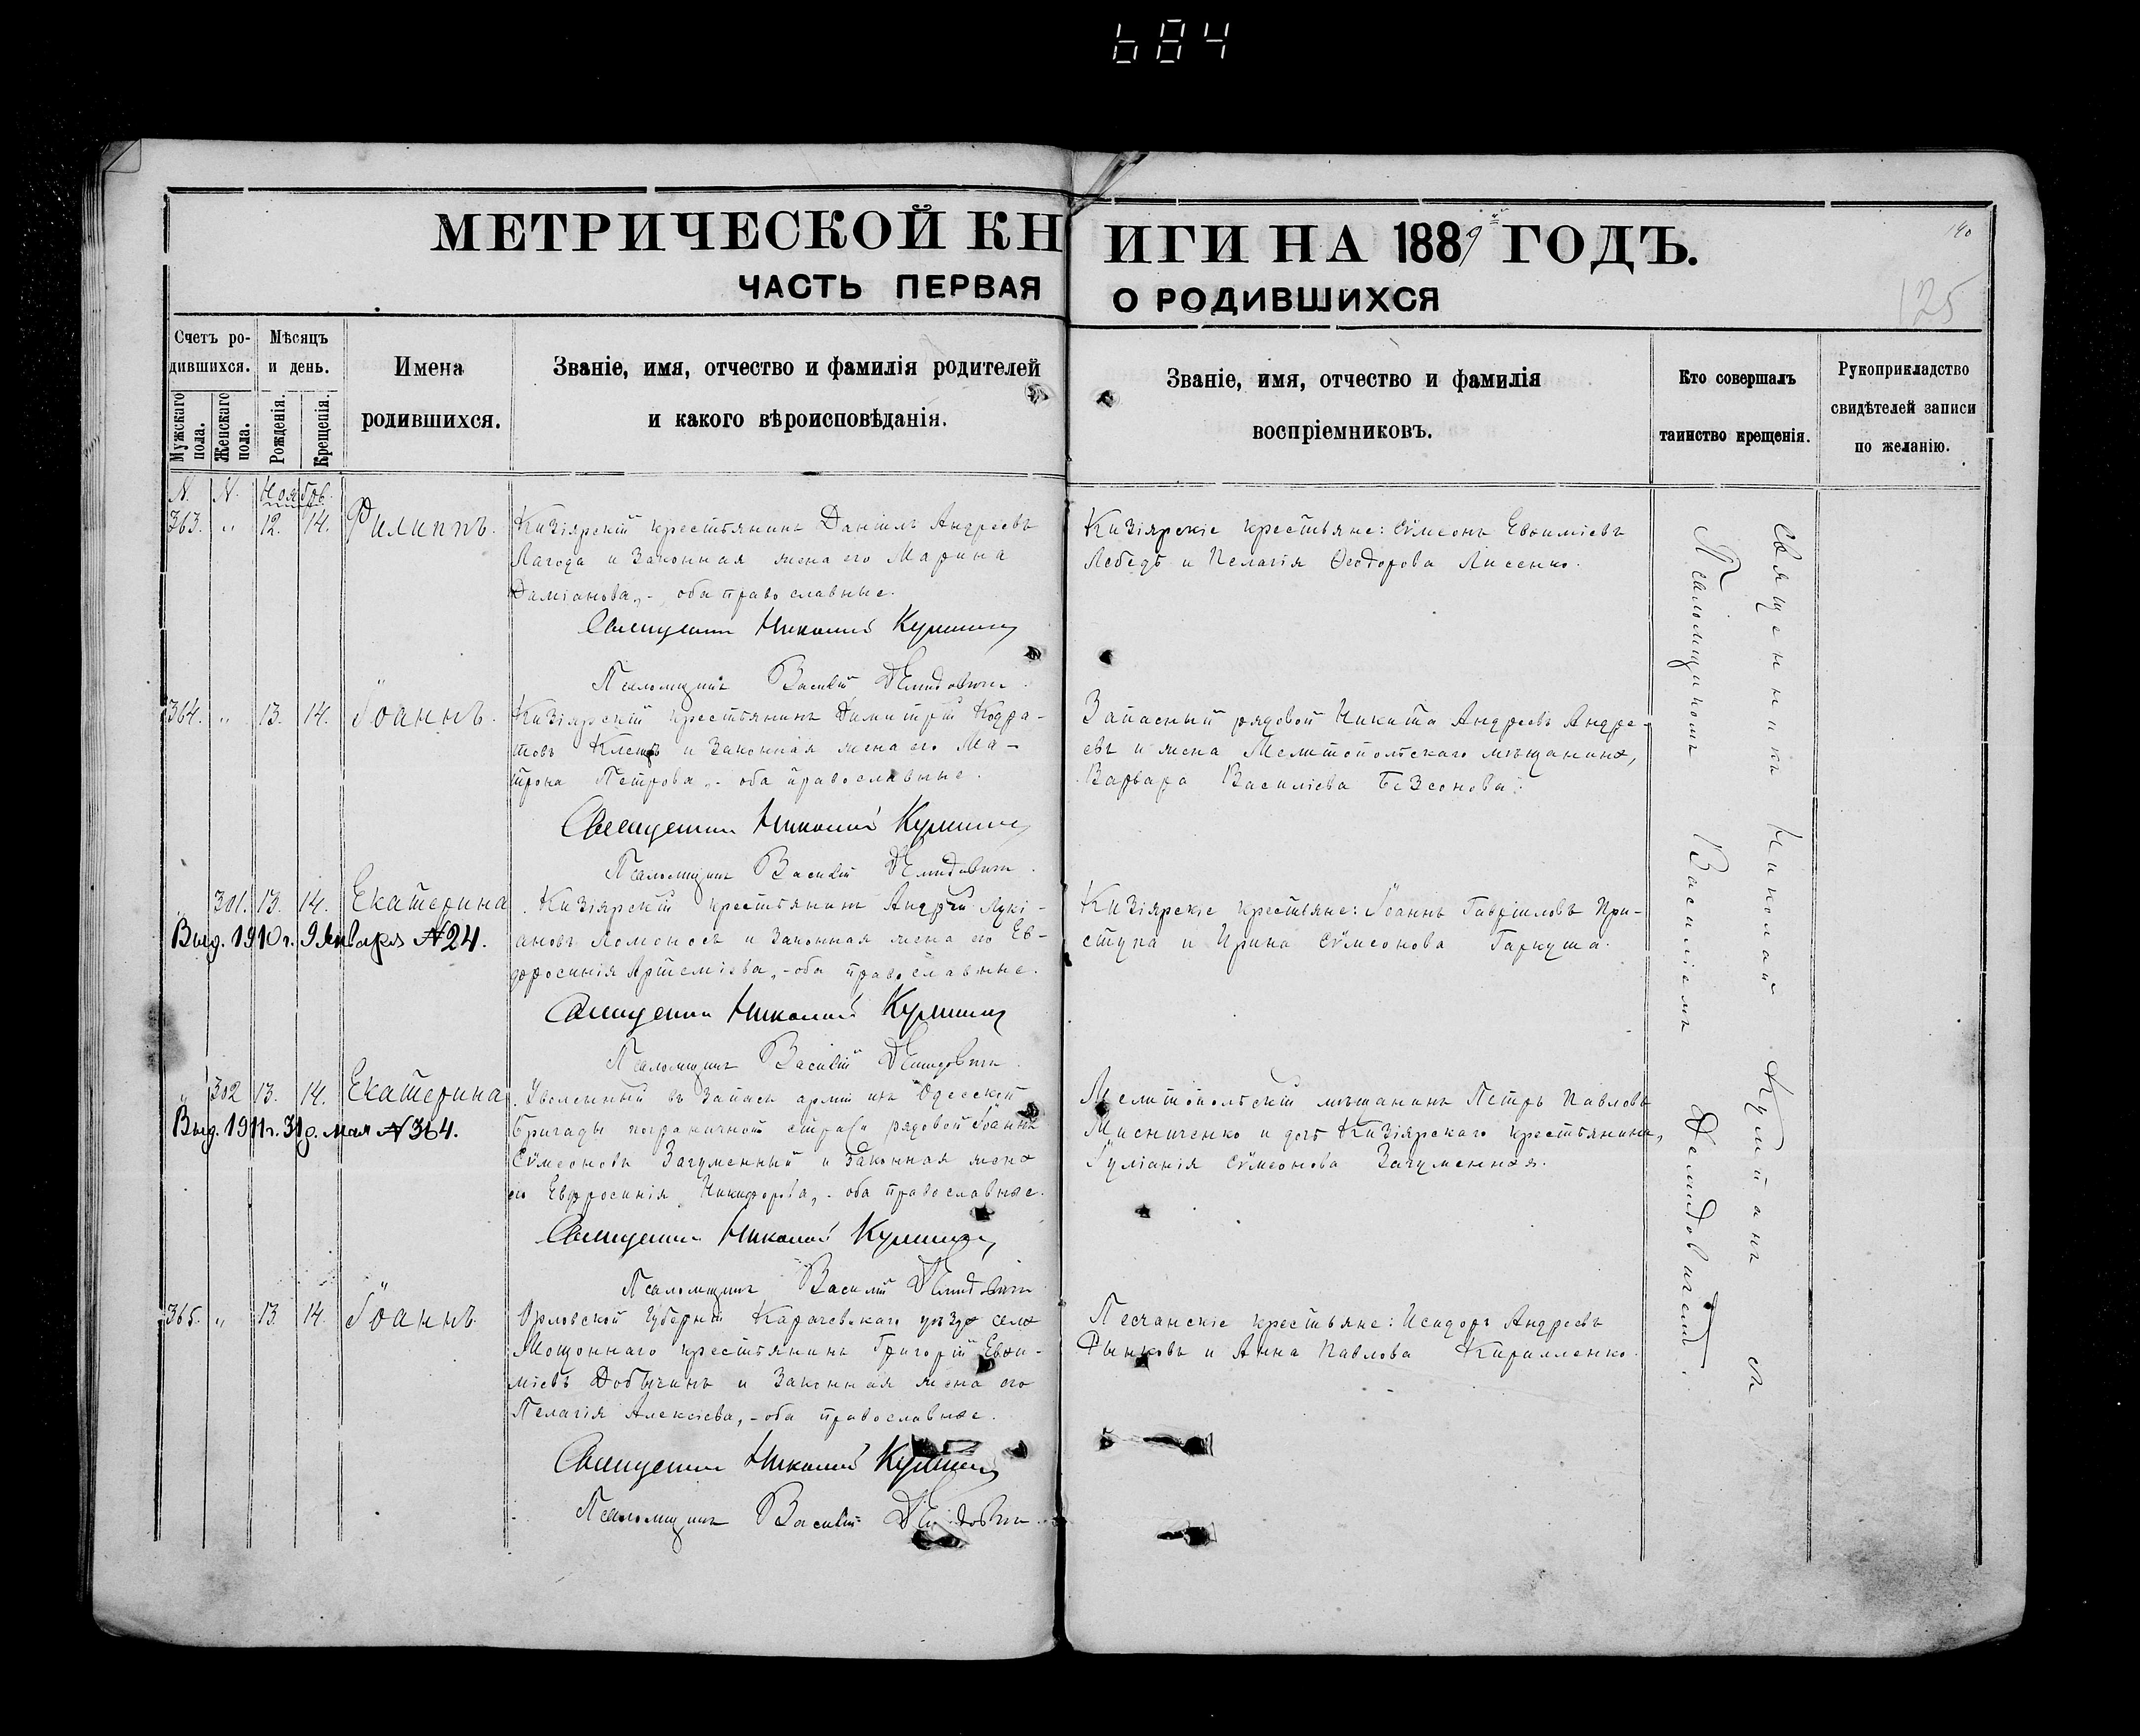 684
МЕТРИЧЕСКОЙ КНИГИ НА 1889й ГОДЪ.
140
125
ЧАСТЬ ПЕРВАЯ О РОДИВШИХСЯ
Счетъ ро-
дившихся.
Мужскаго пола.
Женскаго пола.
Мѣсяцъ
и день.
Рожденія.
Крещенія.
Имена
родившихся.
Званіе, имя, отчество и фамилія родителей
и какого вѣроисповѣданія.
Званіе, имя, отчество и фамилія
воспріемниковъ.
Кто совершалъ
таинство крещенія.
Рукоприкладство
свидѣтелей записи
по желанію.
N. N. Нояб.
363. " 12. 14. Филиппъ.
Кизіярскій крестьянинъ Даніилъ Андреевъ
Лагода и законная жена его Марина
Даміанова, - оба православные.
Священникъ Николай
Псаломщикъ Василій Демидовичъ.
Кизіярскіе крестьяне: Сѵмеонъ Евѳиміевъ
Лебедь и Пелагія Ѳеодорова Лисенко.
364. " 13. 14. Іоаннъ.
Кизіярскій крестьянинъ Димитрій Кодра-
товъ и законная жена его Ма-
трона Петрова, - оба православные.
Священникъ Николай
Псаломщикъ Василій Демидовичъ.
Запасный рядовой Никита Андреевъ Андре-
евъ и жена Мелитопольскаго мѣщанина,
Варвара Василіева Безсонова.
" 301. 13. 14. Екатерина.
Выд. 1910 г. 9 Января № 24.
Кизіярскій крестьянинъ Андрей Лукі-
ановъ Ломоносъ и законная жена его Ев-
фросинія Артеміева, - оба православные.
Священникъ Николай
Псаломщикъ Василій Демидовичъ.
Кизіярскіе крестьяне: Іоаннъ Гавріиловъ При-
ступа и Ирина Сѵмеонова Гаркуша.
" 302 13. 14. Екатерина.
Выд. 1911 г. 31 д. мая № 364.
Уволенный въ запасъ арміи изъ Одесской
бригады пограничной стражи рядовой Іоаннъ
Сѵмеоновъ Загуменный и законная жена
его Евфросинія Никифорова, - оба православные.
Священникъ Николай
Псаломщикъ Василій Демидовичъ
Мелитопольскій мѣщанинъ Петръ Павловъ
Мисниченко и дочь Кизіярскаго крестьянина,
Іуліанія Сѵмеонова Загуменная.
365. " 13. 14. Іоаннъ.
Орловской губерніи Карачевскаго уѣзда села
Мощоннаго крестьянинъ Григорій Евѳи-
міевъ Добычинъ и законная жена его
Пелагія Алексіева, - оба православные.
Священникъ Николай
Псаломщикъ Василій Демидовичъ.
Песчанскіе крестьяне: Исидоръ Андреевъ
Рынковъ и Анна Павлова Кирилленко.
Священникъ Николай съ
Псаломщикомъ Василіемъ Демидовичемъ.